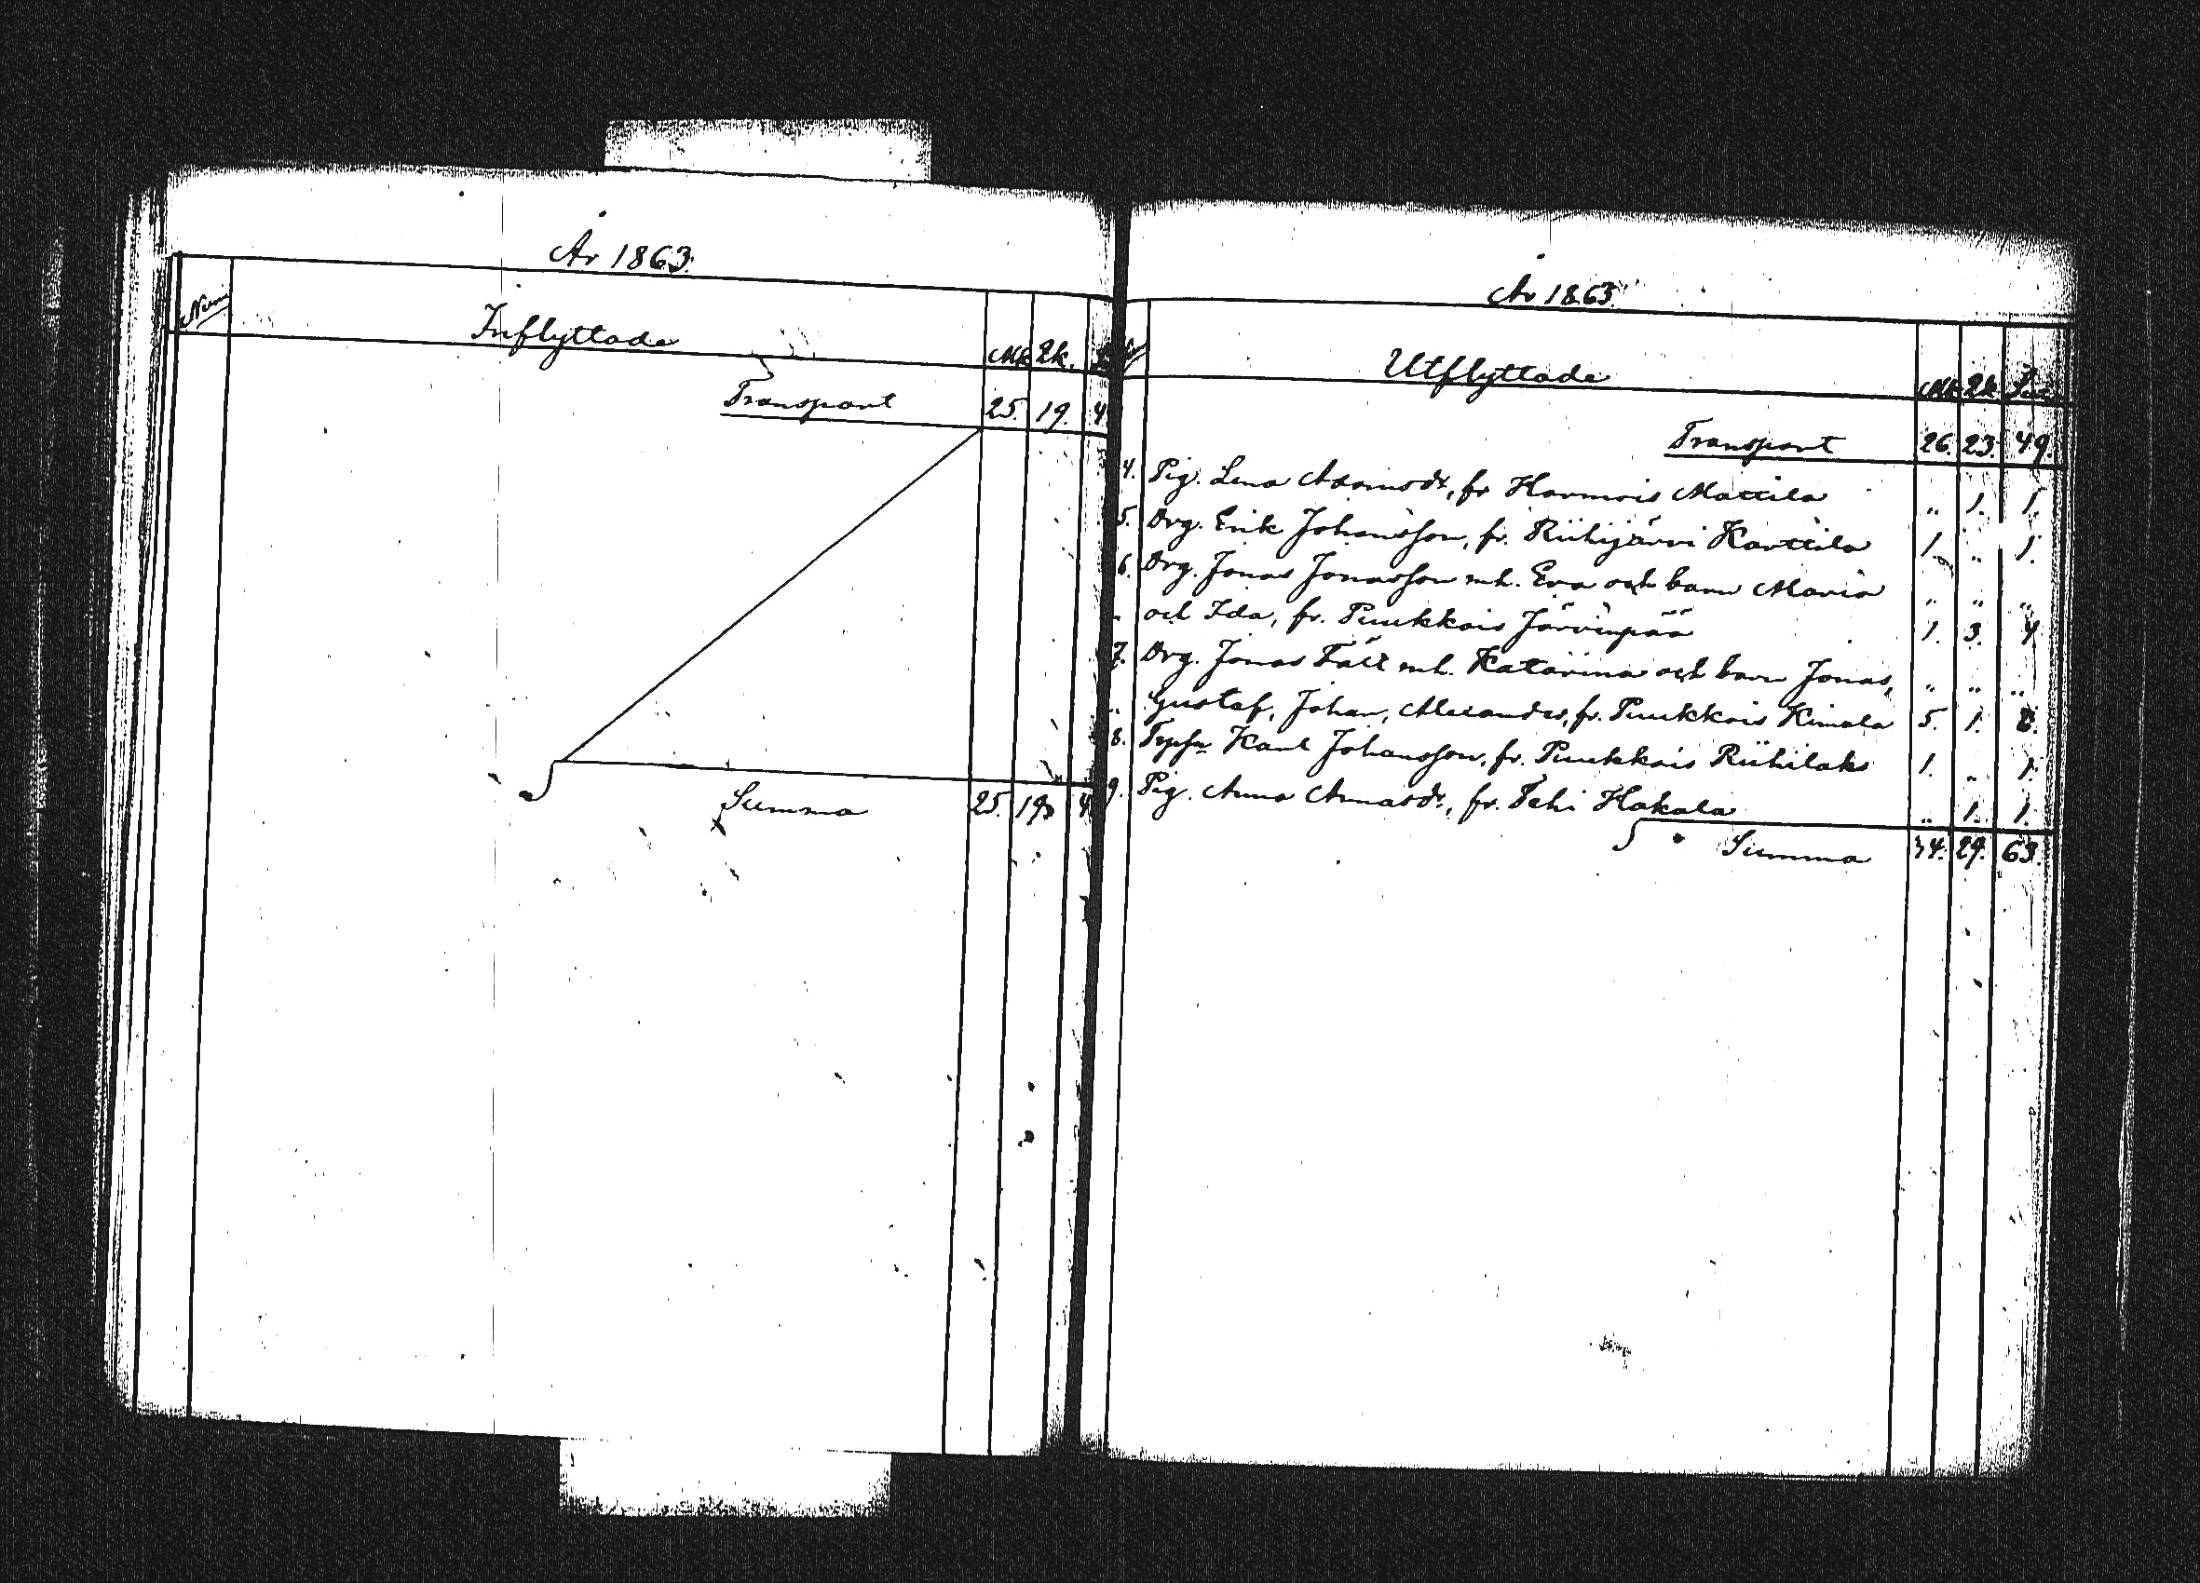 År 1863.
Num
Inflyttade
Mk. Qk.
Transport 25. 19. 4
Summa 25. 19. 4
År 1863.
Utflyttade
Mk. Qk.
Transport 26. 23. 49.
4. Pig. Lena Adamsdr, fr Harmois Mattila „ 1. 1.
5. Drg. Erik Johansson, fr. Riihijärvi Karttila 1. „ 1.
6. Drg. Jonas Jonasson mh. Eva och barn Maria „ „ „
„ och Ida, fr. Puukkois Järvenpää 1. 3. 4
7. Drg. Jonas Fält mh. Katarina och barn Jonas, „ „ „
„ Gustaf, Johan, Alexander, fr. Puukkois Kimala 5. 1. 6.
8. Karl Johansson, fr. Puukkois Riihilaks 1. „ 1.
9. Pig. Anna Annasdr, fr. Tehi Hakala „ 1. 1.
Summa 34. 29. 63.